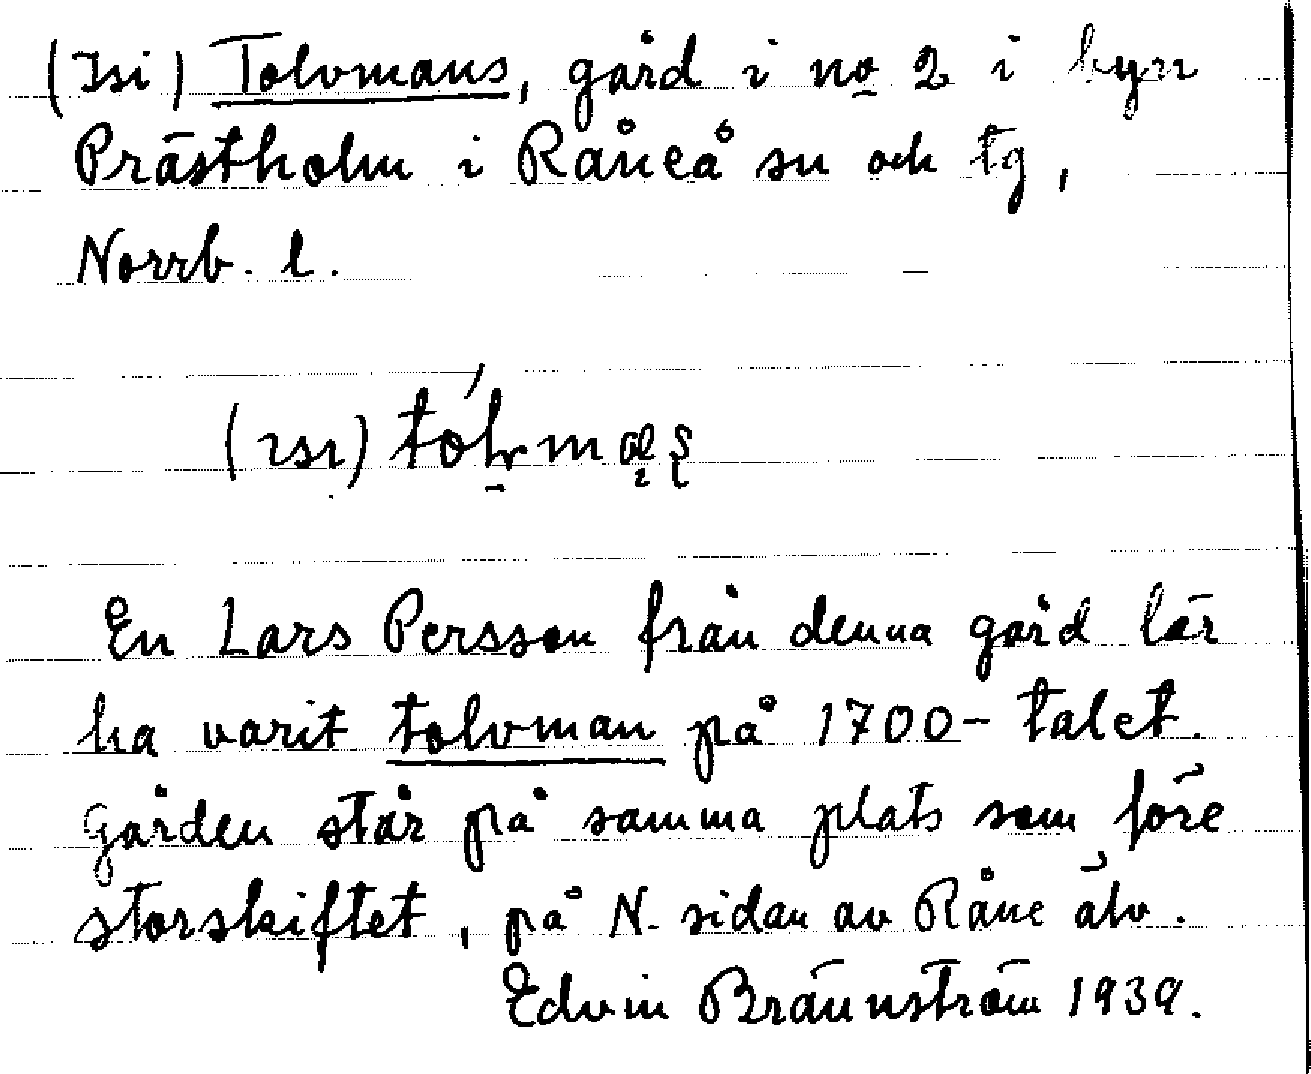 (Isi) Tolvmans, gård i no 2 i byn
Prästholm i Råneå sn och tg,
Norrb. l.
(ısı)
En Lars Persson från denna gård lär
ha varit tolvman på 1700-talet.
Gården står på samma plats som före
storskiftet, på N. sidan av Råne älv.
Edvin Brännström 1939.